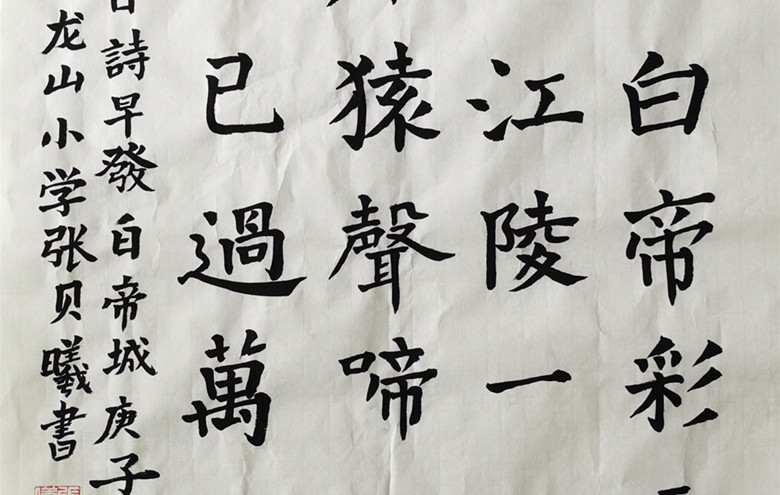 白帝彩
江陵一
猿聲啼
已過萬
詩早發白帝城庚子
龙山小学张贝曦書